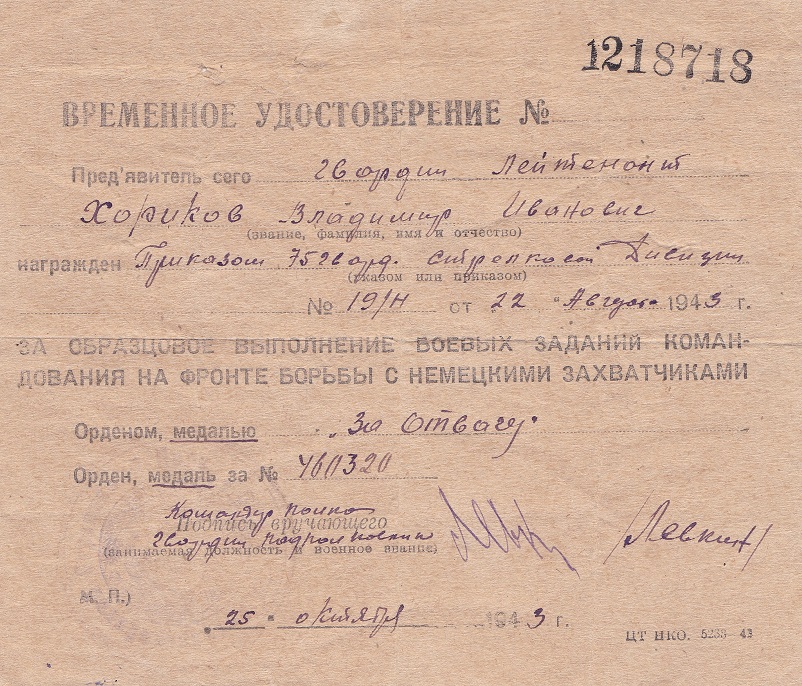 1218718
ВРЕМЕННОЕ УДОСТОВЕРЕНИЕ №
Пред'явитель сего гвардии Лейтенант
Хориков Владимир Иванович
(звание, фамилия, имя и отчество)
награжден Приказом 75 гвард. стрелковой Дивизии
(указом или приказом)
№ 19/Н от "22" Августа 1943 г.
ЗА ОБРАЗЦОВОЕ ВЫПОЛНЕНИЕ БОЕВЫХ ЗАДАНИЙ КОМАН-
ДОВАНИЯ НА ФРОНТЕ БОРЬБЫ С НЕМЕЦКИМИ ЗАХВАТЧИКАМИ
Орденом, медалью "За Отвагу"
Орден, медаль за № 460320
Командир полка
Подпись вручающего
гвардии подполковник /Левкин/
(занимаемая должность и военное звание)
М. П.)
"25" октября 1943 г.
ЦТ НКО. 5233—43